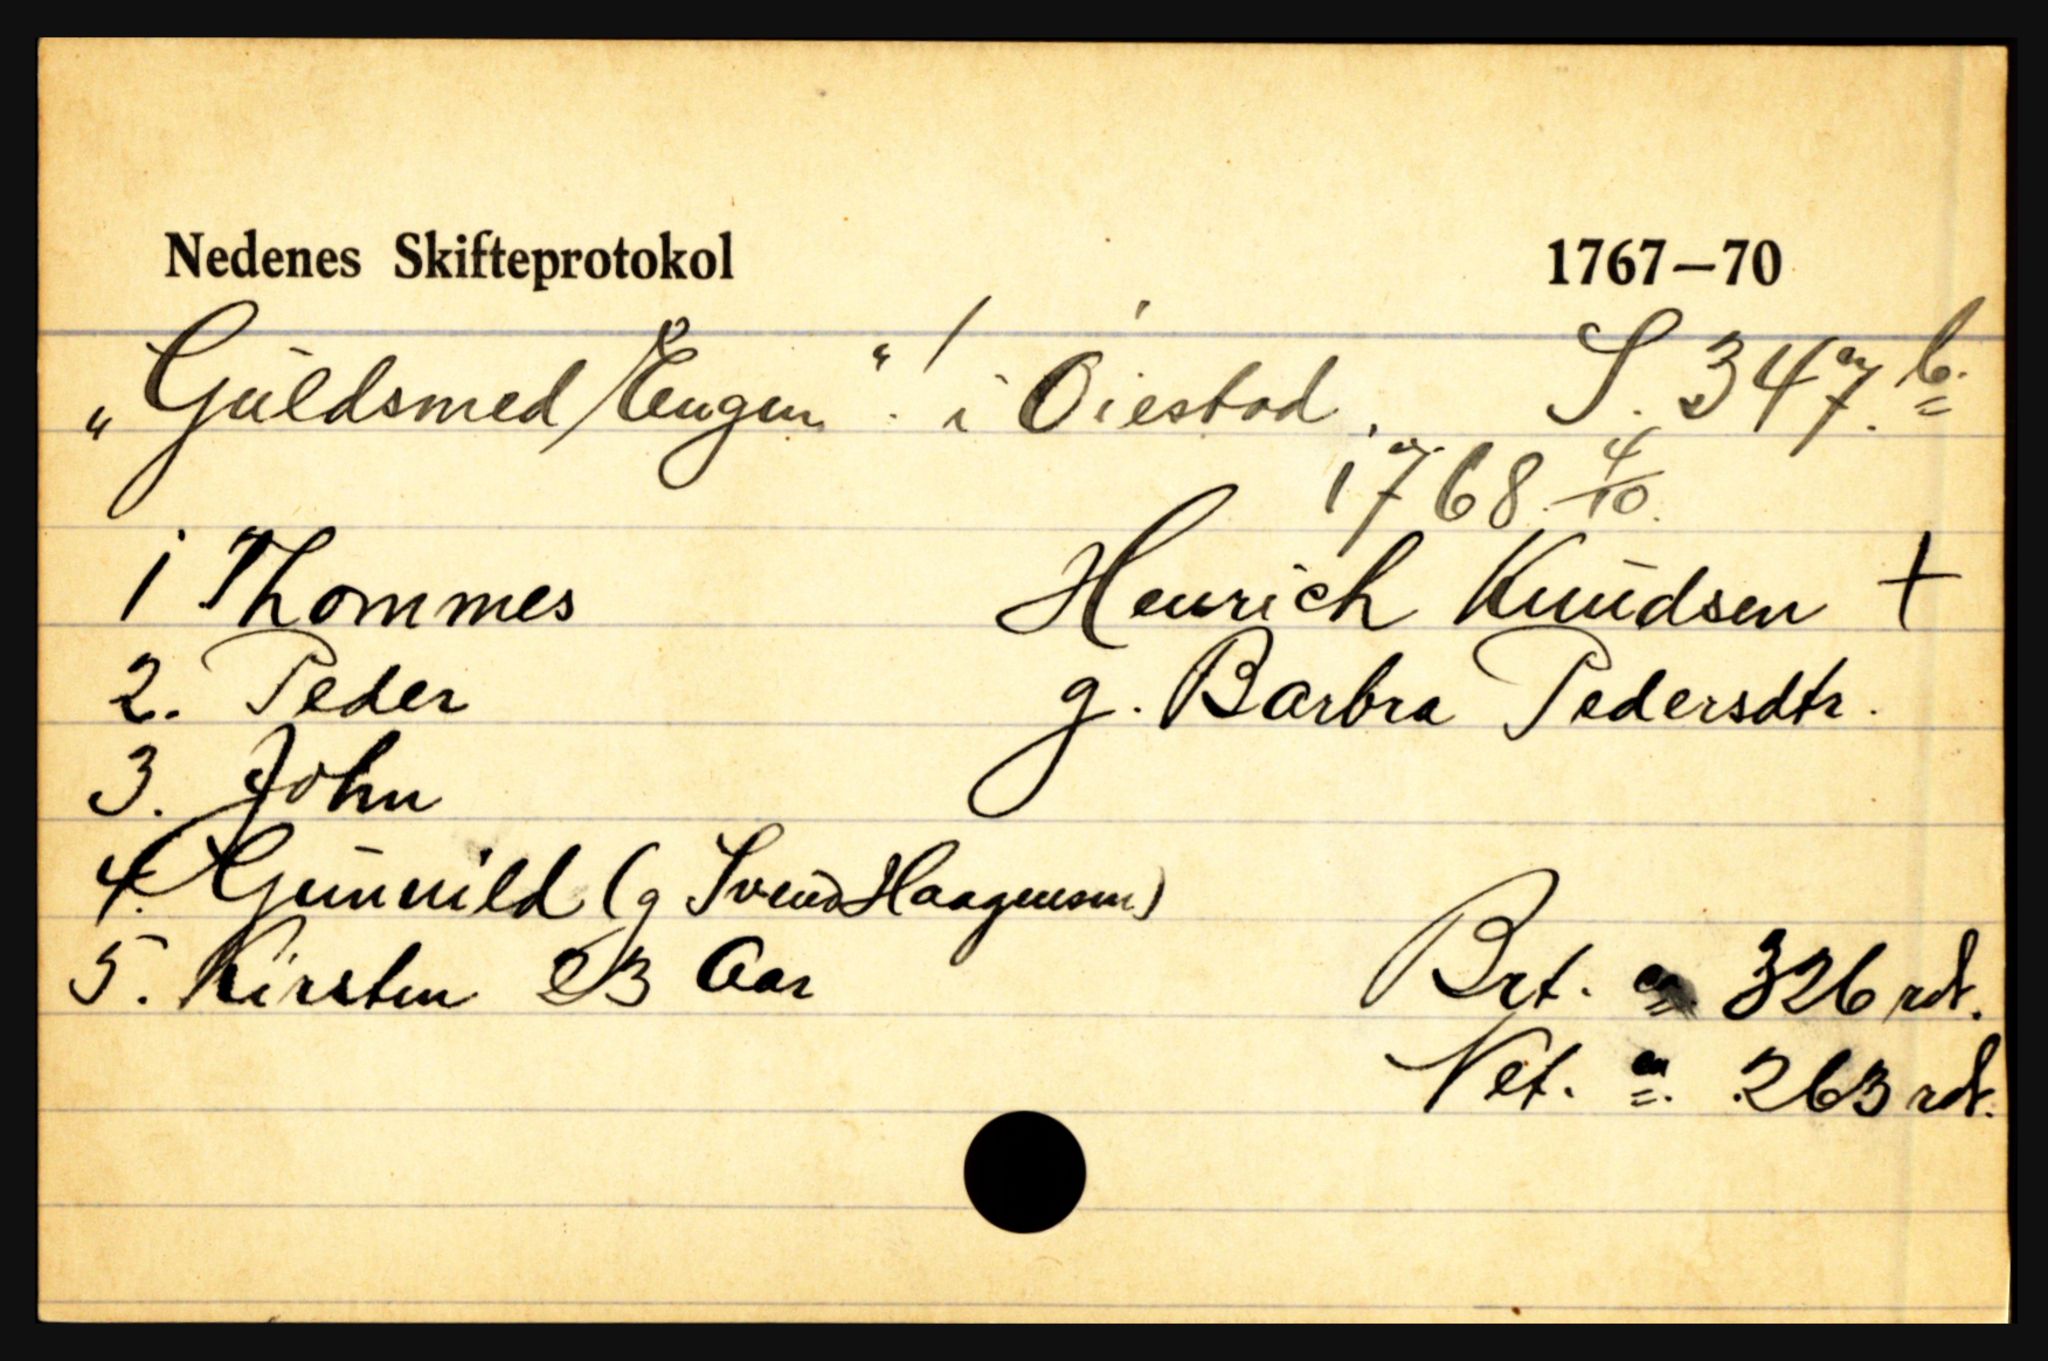 Nedenes Skifteprotokol 1767—70
„Guldsmed Engen“ i Oiestad. S. 347.b.
1768 4/10.
1 Thommes Henrich Knudsen +
2. Peder g. Barbra Pedersdtr.
3. John
4. Gunnild (g Svend Haagensen)
5. Kirsten 23 Aar Brt. = 326 rdr.
Net. = 263 rdr.